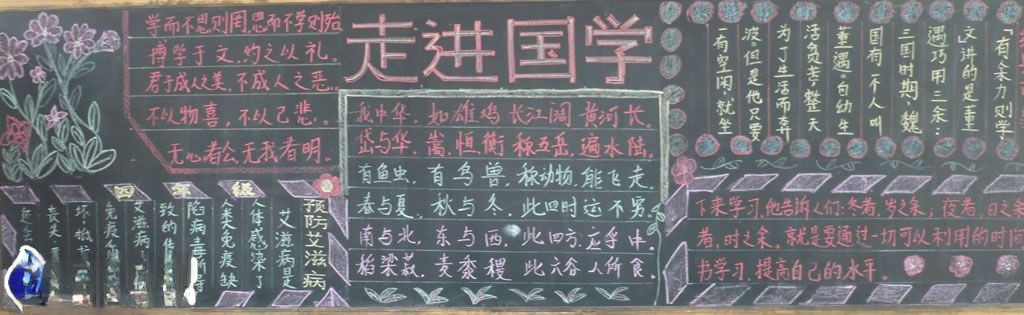 走进国学
学而不思则罔,思而不学则殆
博学于文,约之以礼。
君子成人之美,不成人之恶。
不以物喜,不以己悲。
无心者公,无我者明。
我中华,如雄鸡 长江阔 黄河长。
岱与华,嵩,恒,衡 称五岳,遍水陆。
有鱼虫,有鸟兽,称动物,能飞走,
春与夏,秋与冬,此四时 运不穷。
南与北,东与西,此四方,应乎中。
稻梁菽,麦黍稷 此六谷 人所食。
“有余力则学
文”讲的是董
遇巧用三余:
三国时期,魏
国有一个人叫
董遇,自幼生
活贫苦,整天
为了生活而奔
波。但是他只要
一有空闲,就坐
下来学习,他告诉人们:冬者,岁之余;夜者,日之余
者,时之余。就是要通过一切可以利用的时间
书学习,提高自己的水平。
四年级
预防艾滋病
艾滋病是
人体感染了
人类免疫缺
陷病毒所
致的传
艾滋病
免疫
坏
丧失